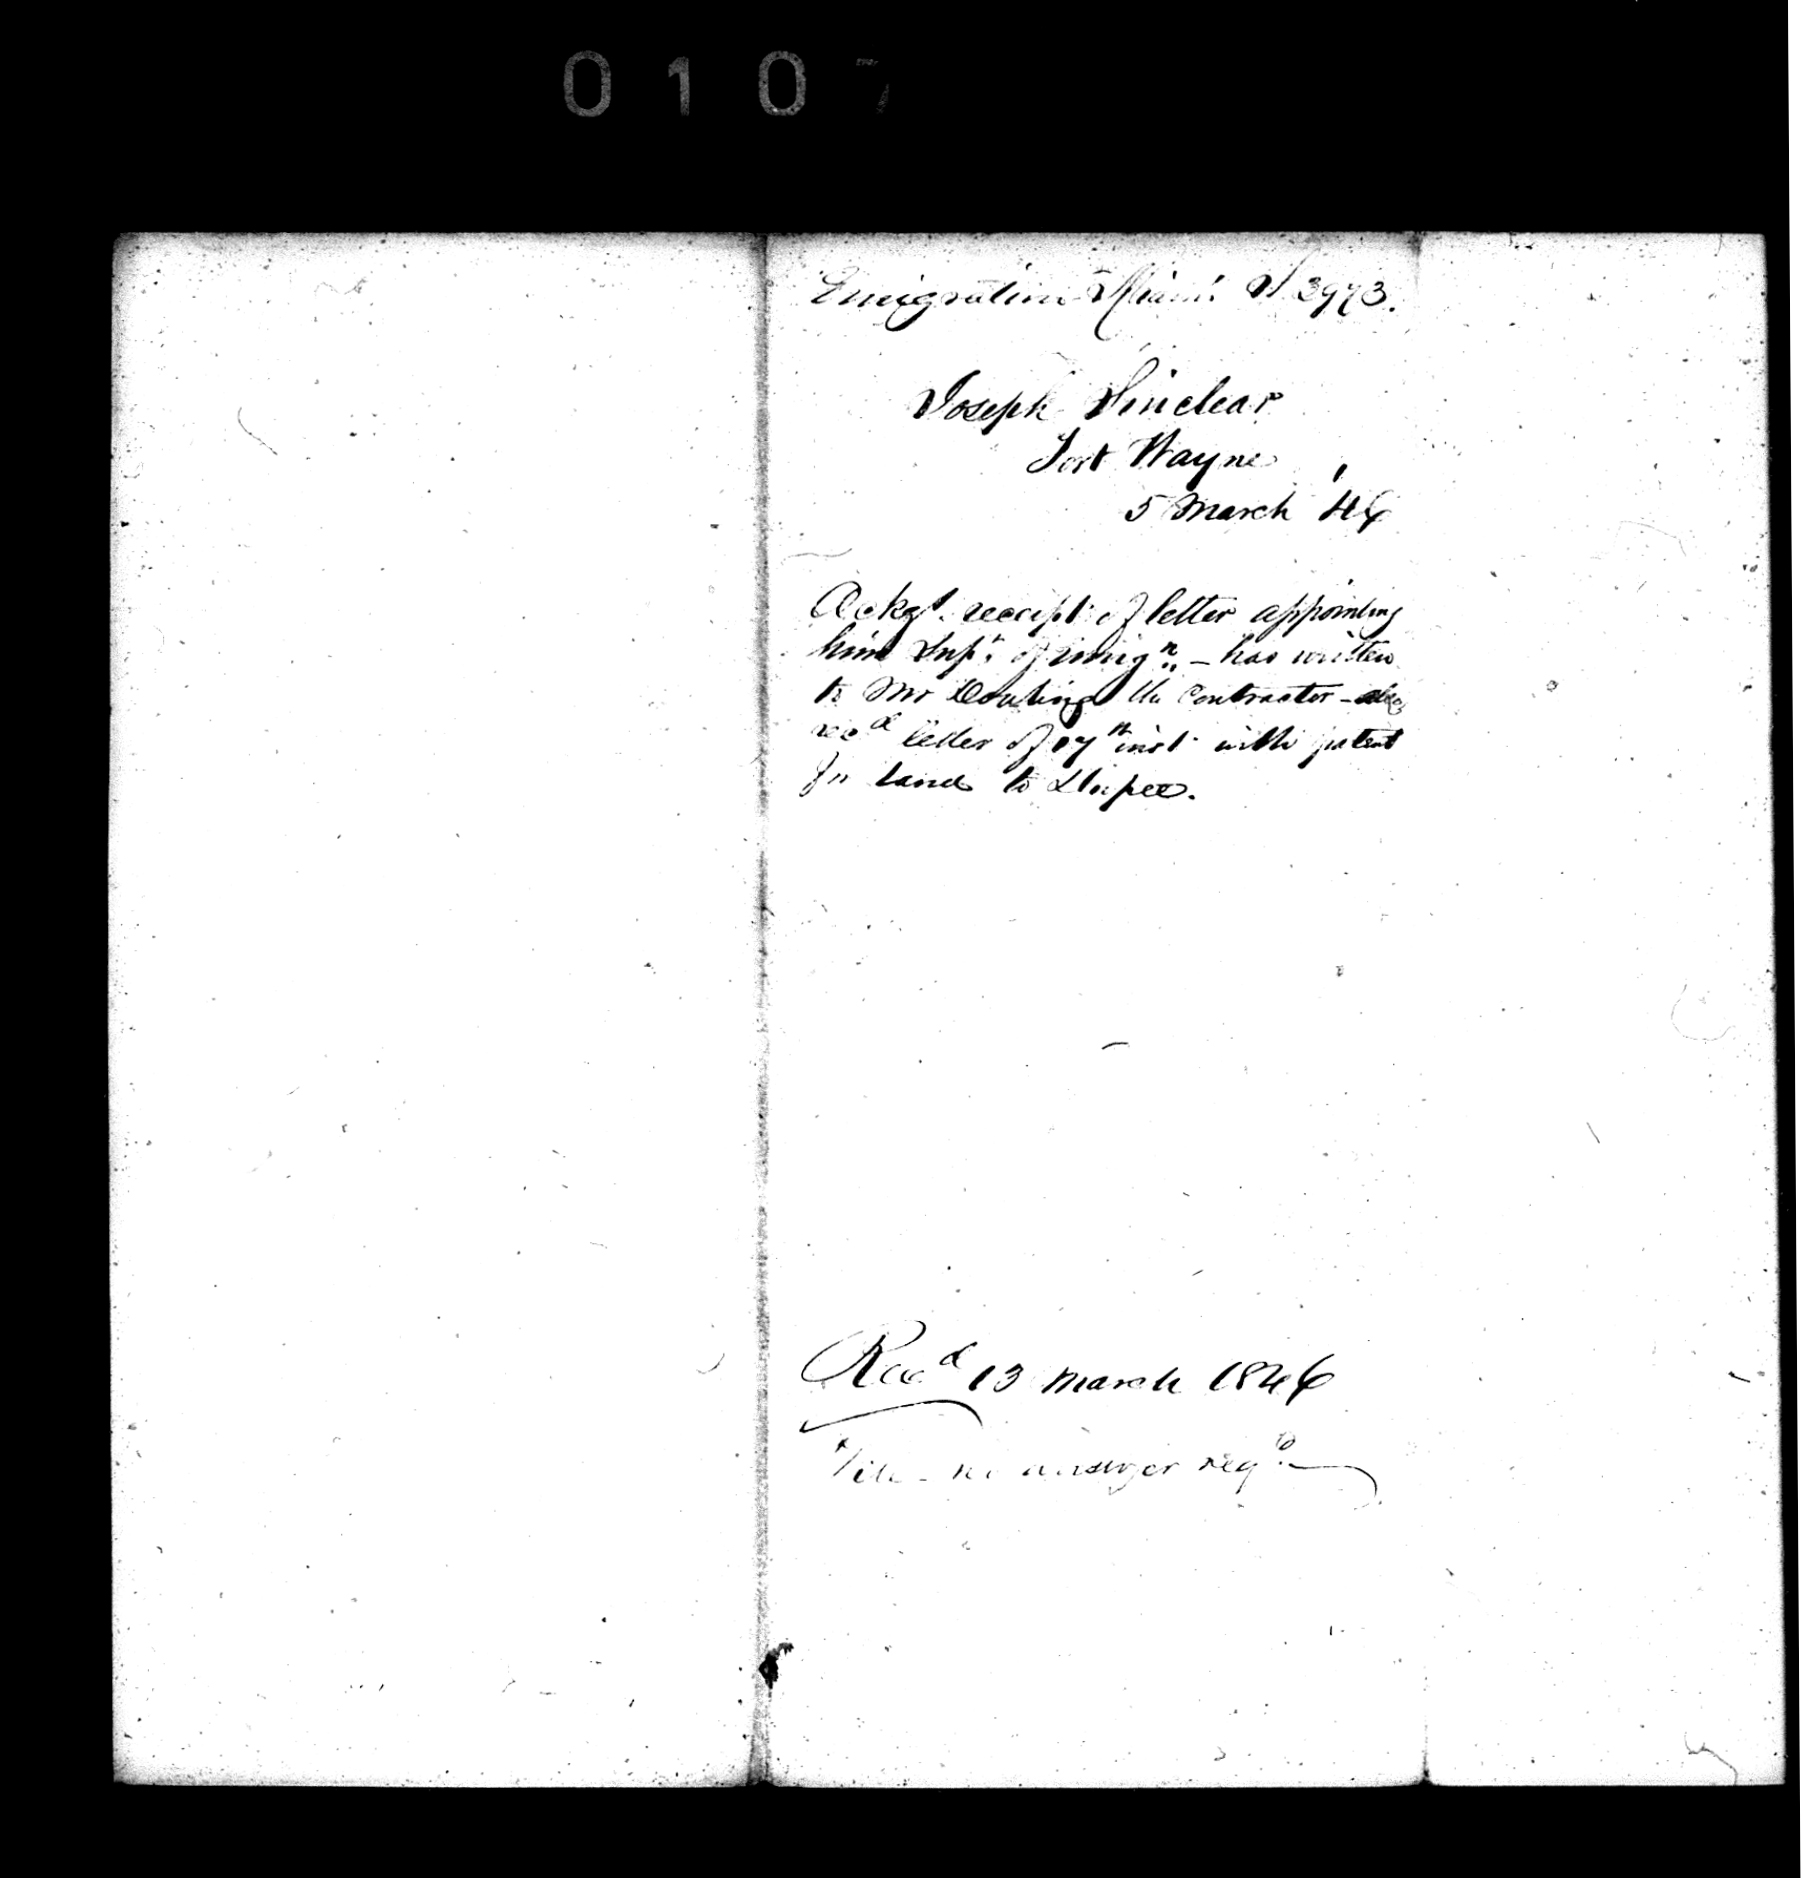 0107
Emigration Miami S 2973.
Joseph Sinclear
Fort Wayne
5 March '46
Ackgs. receipt of letter appointing
him Supt. of Emign. – has written
to Mr the Contractor – also
recd letter of 17th inst with patent
for land to
Recd 13 March 1846
File – no answer reqd.